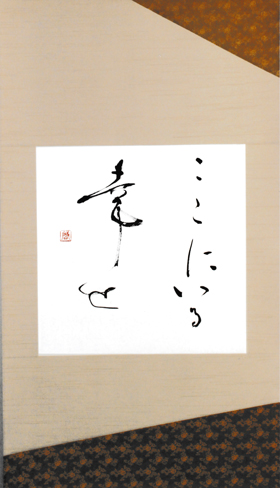 ここにいる
幸せ